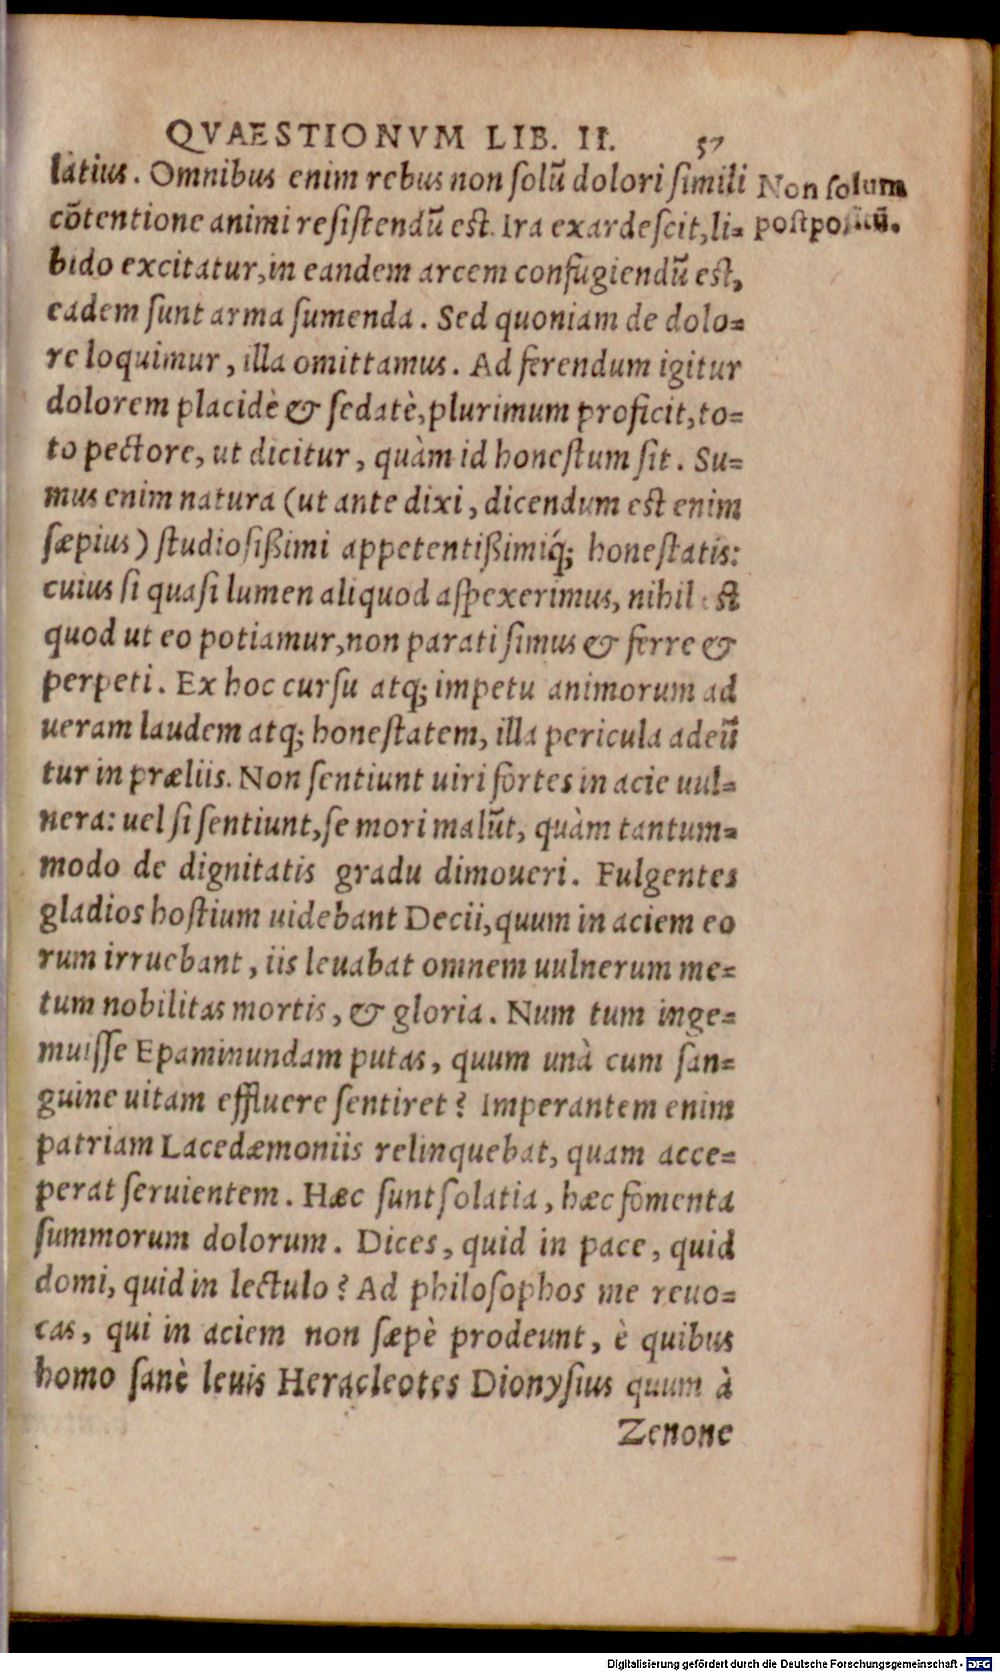 QVAESTIONVM LIB. II. 57
latius. Omnibus enim rebus non ſolū dolori ſimili
cōtentione animi reſiſtendū est. Ira exardeſcit, li-
bido excitatur, in eandem arcem confugiendū est,
eadem ſunt arma ſumenda. Sed quoniam de dolo-
re loquimur, illa omittamus. Ad ferendum igitur
dolorem placidè & ſedatè, plurimum proficit, to-
to pectore, ut dicitur, quàm id honeſtum ſit. Su-
mus enim natura (ut ante dixi, dicendum est enim
ſæpius) ſtudioſißimi appetentißimiq́; honeſtatis:
cuius ſi quaſi lumen aliquod aſpexerimus, nihil est
quod ut eo potiamur, non parati ſimus & ferre &
perpeti. Ex hoc curſu atq; impetu animorum ad
ueram laudem atq; honeſtatem, illa pericula adeū
tur in præliis. Non ſentiunt uiri fortes in acie uul-
nera: uel ſi ſentiunt, ſe mori malūt, quàm tantum-
modo de dignitatis gradu dimoueri. Fulgentes
gladios hoſtium uidebant Decii, quum in aciem eo
rum irruebant, iis leuabat omnem uulnerum me-
tum nobilitas mortis, & gloria. Num tum inge-
muiſſe Epaminundam putas, quum unà cum ſan-
guine uitam effluere ſentiret? Imperantem enim
patriam Lacedæmoniis relinquebat, quam acce-
perat ſeruientem. Hæc ſunt ſolatia, hæc fomenta
ſummorum dolorum. Dices, quid in pace, quid
domi, quid in lectulo? Ad philoſophos me reuo-
cas, qui in aciem non ſæpè prodeunt, è quibus
homo ſanè leuis Heracleotes Dionyſius quum à
Zenone
Non ſolum
poſtpoſitū.
Digitalisierung gefördert durch die Deutsche Forschungsgemeinschaft - DFG